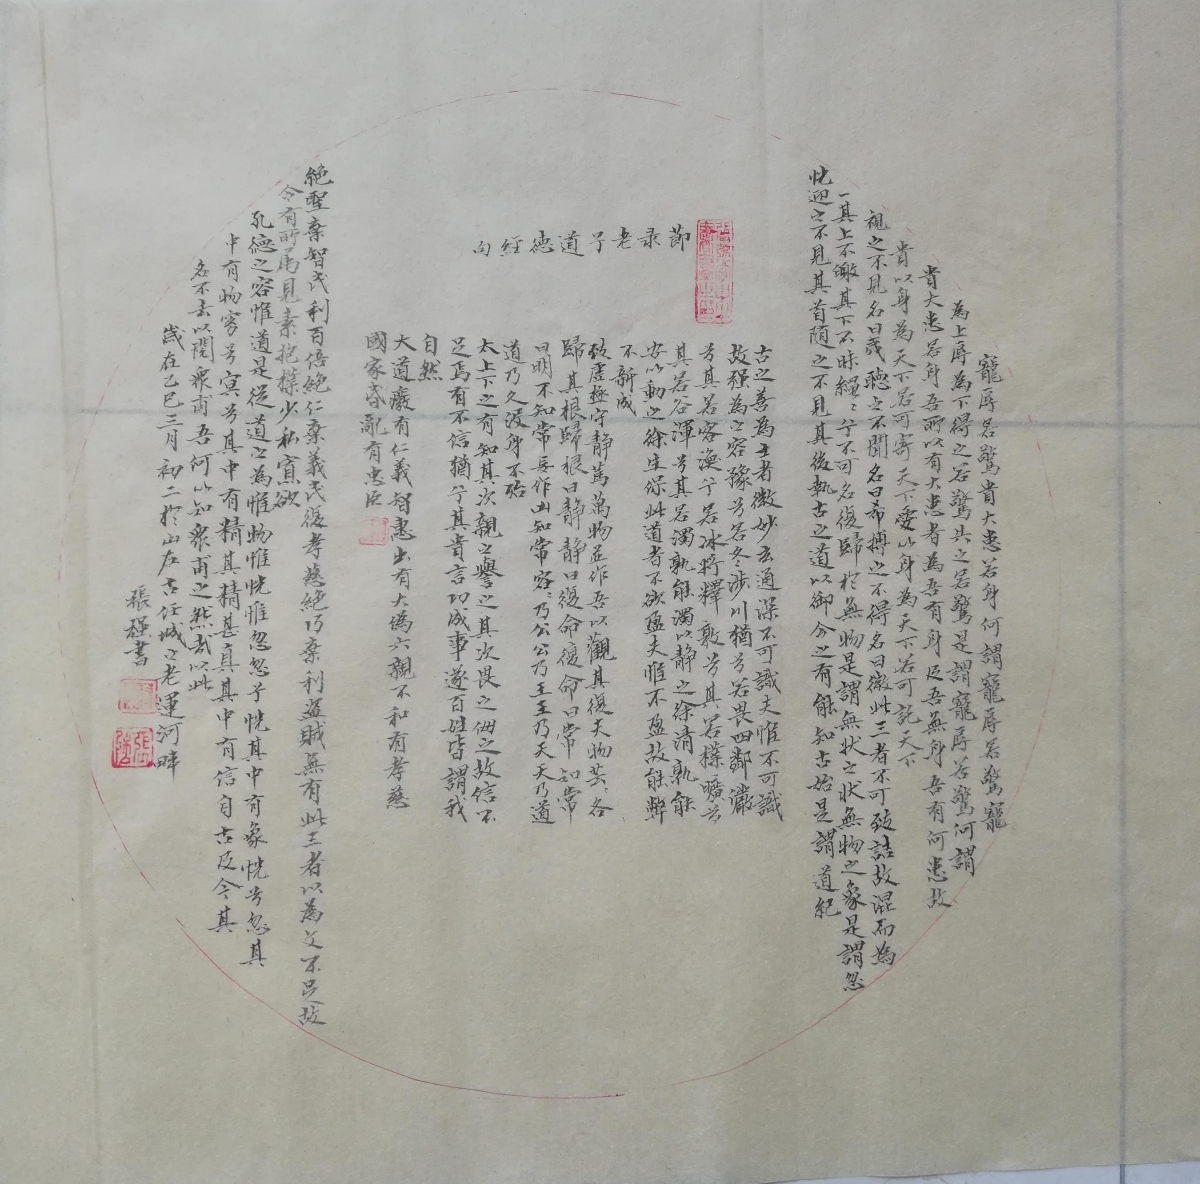 寵辱若驚貴大患若身何謂寵辱若驚寵
為上辱為下得之若驚失之若驚是謂寵辱若驚何謂
貴大患若身吾所以有大患者為吾有身及吾無身吾有何患故
貴以身為天下若可寄天下愛以身為天下若可託天下
視之不見名曰夷聽之不聞名曰希搏之不得名曰微此三者不可致詰故混而為
一其上不皦其下不昧繩、兮不可名復歸於無物是謂無狀之狀無物之象是謂忽
恍迎之不見其首隨之不見其後執古之道以御今之有能知古始是謂道紀
節录老子道德經句
古之善為士者微妙玄通深不可識夫惟不可識
故强為之容豫兮若冬涉川猶兮若畏四鄰儼
兮其若容渙兮若冰將釋敦兮其若樸曠兮
其若谷渾兮其若濁孰能濁以静之徐清孰能
安以動之徐生保此道者不欲盈夫惟不盈故能弊
不新成
致虛極守静篤萬物並作吾以觀其復夫物芸、各
歸其根歸根曰静静曰復命復命曰常知常
曰明不知常妄作凶知常容、乃公公乃王王乃天天乃道
道乃久沒身不殆
太上下之有知其次親之譽之其次畏之侮之故信不
足焉有不信猶兮其貴言功成事遂百姓皆謂我
自然
大道廢有仁義智惠出有大偽六親不和有孝慈
國家昏亂有忠臣
絕聖棄智民利百倍絕仁棄義民復孝慈絕巧棄利盗賊無有此三者以為文不足故
令有所属見素抱樸少私寡欲
孔德之容惟道是從道之為物惟恍惟忽忽兮恍其中有象恍兮忽其
中有物窈兮冥兮其中有精其精甚真其中有信自古及今其
名不去以閱衆甫吾何以知衆甫之然哉以此
歲在乙巳三月初二於山左古任城之老運河畔
張强書